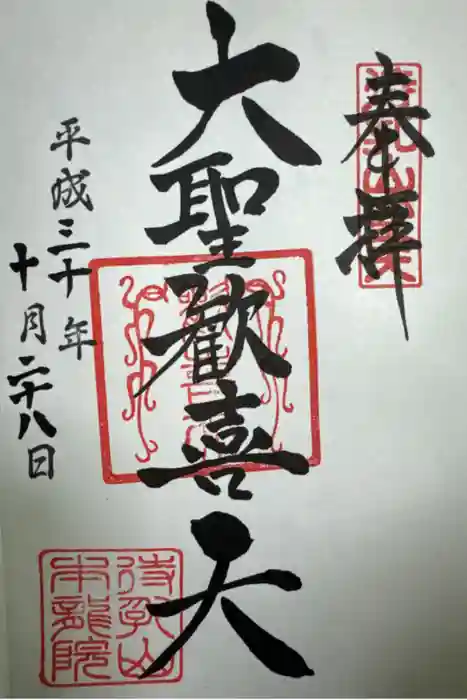 奉拝
大聖歓喜天
平成三十年
十月二十八日
待乳山
本龍院